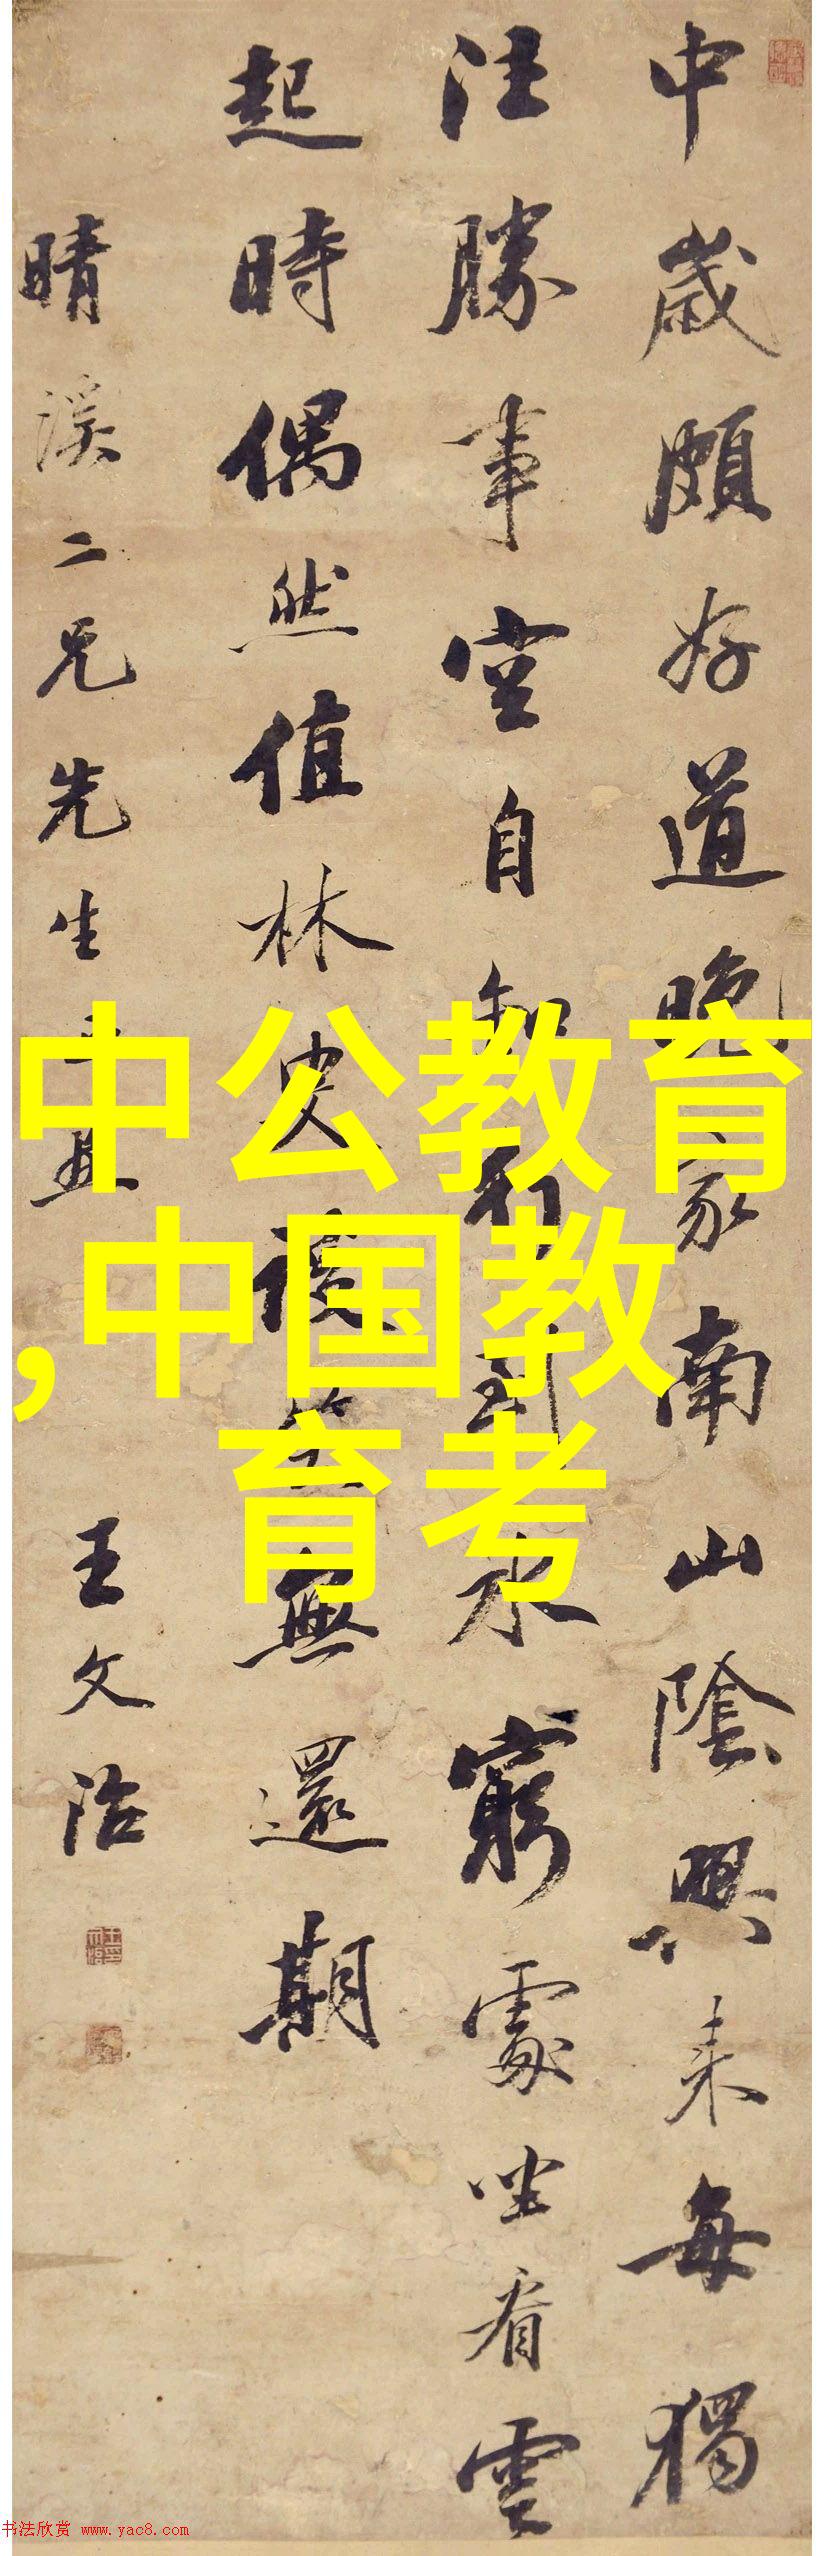 中歲頗好道晚家南山陲興來每獨
往勝事空自知行到水窮處坐看雲
起時偶然值林叟談笑無還期
晴溪二兄先生正
王文治
中公教育
,中国教
育考
书法欣赏 www.yac8.com